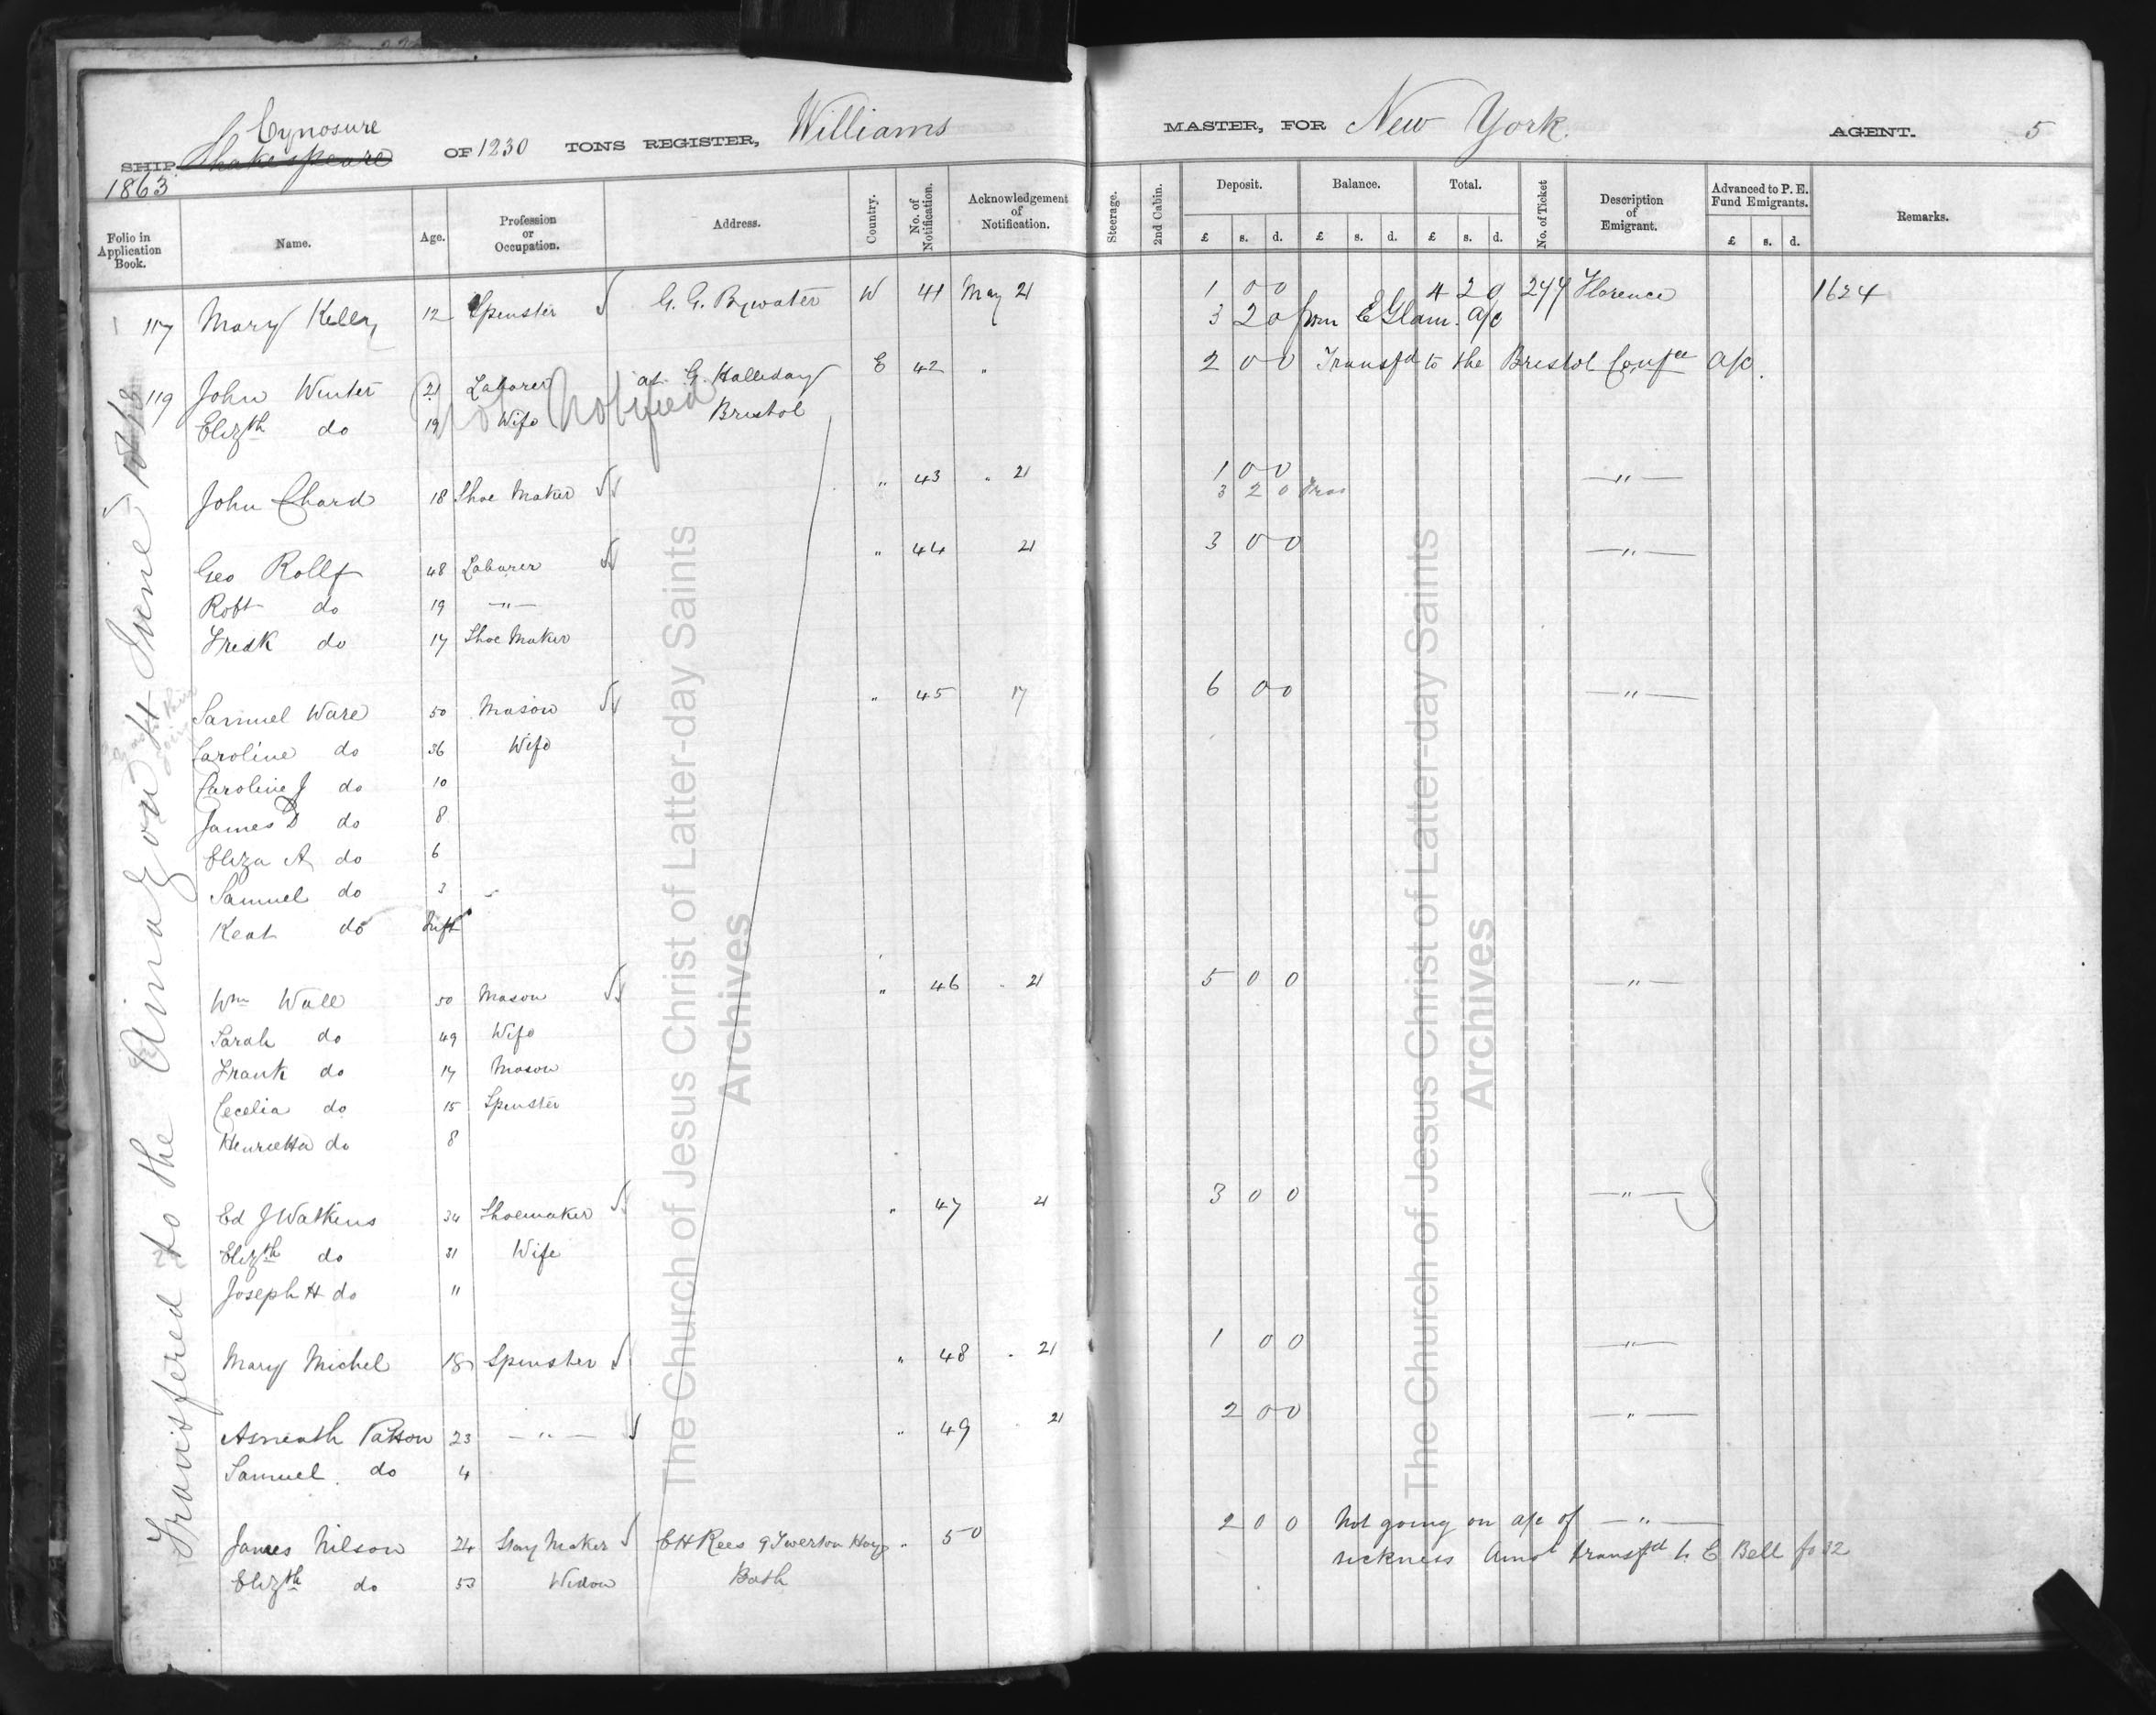 Cynosure
SHIP Shakespeare OF 1230 TONS REGISTER, Williams MASTER, FOR New York. AGENT. 5
1863
Folio in Application Book. Name. Age. Profession or Occupation. Address. Country. No. of Notification. Acknowledgement of Notification. Steerage. 2nd Cabin. Deposit. Balance. Total. No. of Ticket Description of Emigrant. Advanced to P. E. Fund Emigrants. Remarks.
£ s. d. £ s. d. £ s. d. £ s. d.
117 Mary Kelly 12 Spinster G. G. Bywater W 41 May 21 1 0 0 4 2 0 Florence 1624
3 2 0 from E Glam. a/c
119 John Winter 21 Laborer at G. Halliday E 42 " 2 0 0 Transfd to the Bristol Confce a/c.
Elizth do 19 Wife Bristol
Not Notified
John Chard 18 Shoe Maker " 43 " 21 1 0 0 — " —
3 2 0
Geo Rollf 48 Laborer " 44 21 3 0 0 — " —
Robt do 19 — " —
Fredk do 17 Shoe Maker
Samuel Ware 50 Mason " 45 17 6 0 0 — " —
Caroline do 36 Wife
Caroline J do 10
James D do 8
Eliza A do 6
Samuel do 3
Keat do Inft
Wm Wall 50 Mason " 46 " 21 5 0 0 — " —
Sarah do 49 Wife
Frank do 17 Mason
Cecelia do 15 Spinster
Henrietta do 8
Ed J Watkins 34 Shoemaker " 47 21 3 0 0 — " —
Elizth do 31 Wife
Joseph H do "
Mary Michel 18 Spinster " 48 " 21 1 0 0 — " —
Asneath Patson 23 — " — " 49 " 21 2 0 0 — " —
Samuel do 4
James Nilson 24 Stay Maker C H Rees 9 Twerton " 50 2 0 0 Not going on a/c of — " —
Elizth do 53 Widow Bath sickness Amot transfd to E Bell fo 32
Transfered to the Amazon
June
The Church of Jesus Christ of Latter-day Saints
Archives
The Church of Jesus Christ of Latter-day Saints
Archives